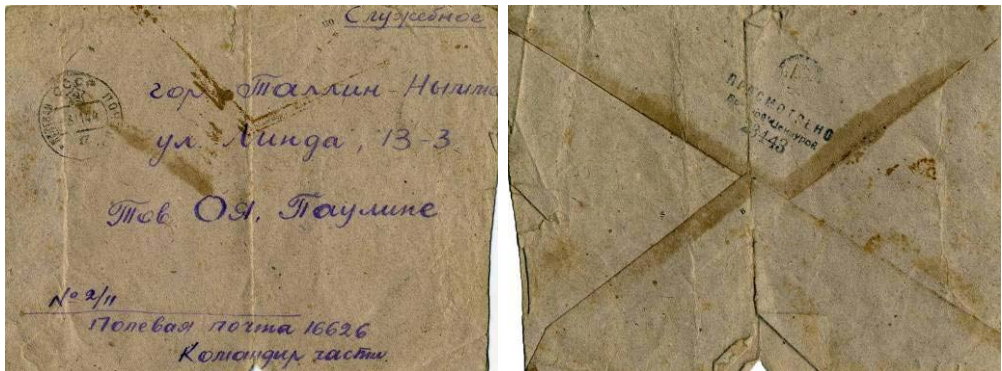 Служебное
гор. Таллин-Нымме
ул. Линда, 13-3
Тов. Оя, Паулине
№ 2/11
Полевая почта 16626
Командир части.
СССР
ПРОСМОТРЕНО
Военной Цензурой
23143